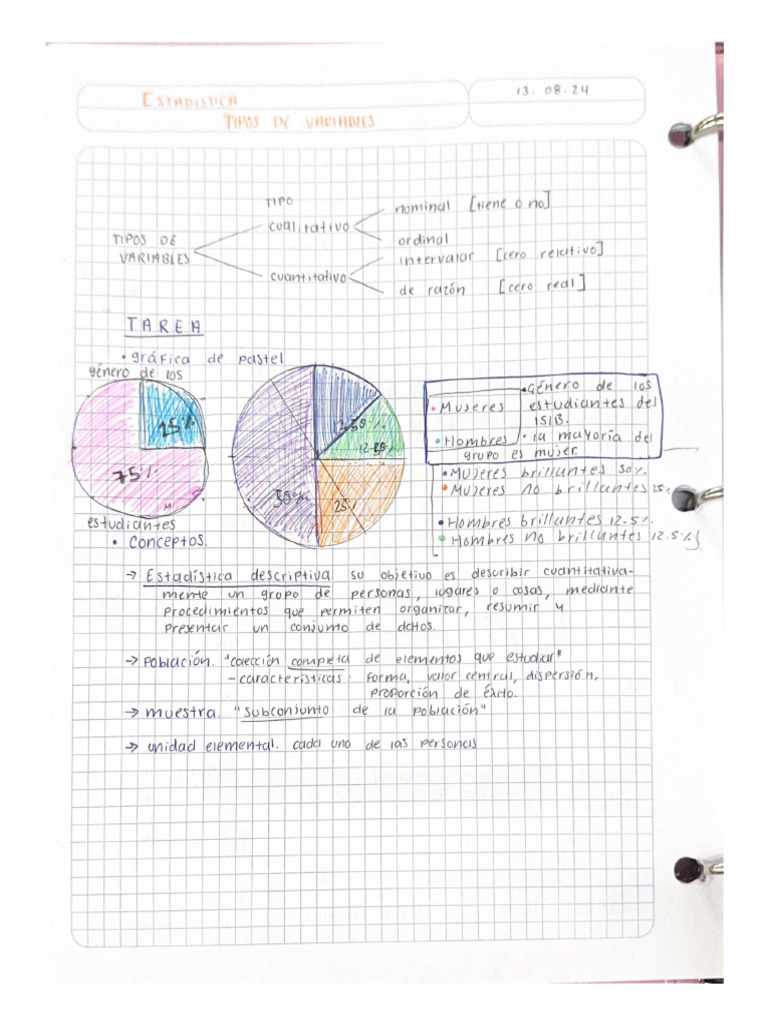 ESTADISTICA
TIPOS DE VARIABLES
13. 08. 24
TIPO
nominal [tiene o no]
cualitativo
ordinal
TIPOS DE
VARIABLES
intervalar [cero relativo]
cuantitativo
de razón [cero real]
TAREA
• gráfica de pastel
género de los
25%
75%
M
estudiantes
12.50%
12.50%
50%
25%
• género de los
• Mujeres estudiantes del
ISIB.
• Hombres • la mayoría del
grupo es mujer.
• Mujeres brillantes 50%.
• Mujeres no brillantes 25%
• Hombres brillantes 12.5%.
• Hombres no brillantes 12.5%
• Conceptos.
→ Estadística descriptiva su objetivo es describir cuantitativa-
mente un grupo de personas, lugares o cosas, mediante
procedimientos que permiten organizar, resumir y
presentar un conjunto de datos.
→ Población. "colección completa de elementos que estudiar"
- características: Forma, valor central, dispersión,
proporción de éxito.
→ muestra. "subconjunto de la población"
→ unidad elemental. cada uno de las personas